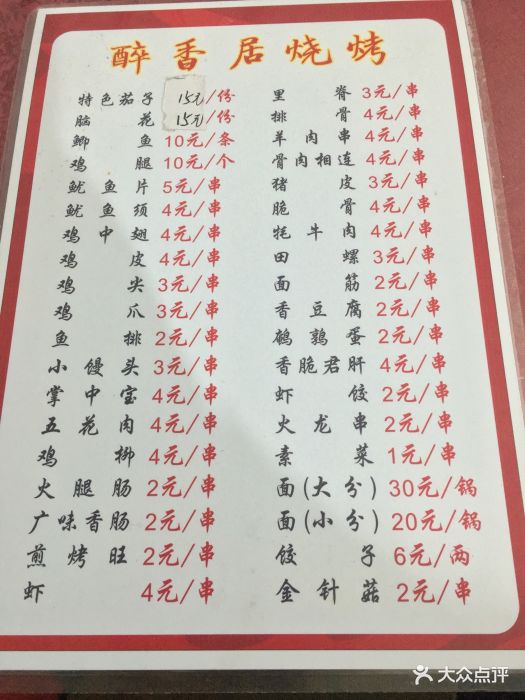 醉香居烧烤
特色茄子 15元/份
脑花 15元/份
鲫鱼 10元/条
鸡腿 10元/个
鱿鱼片 5元/串
鱿鱼须 4元/串
鸡中翅 4元/串
鸡皮 4元/串
鸡尖 3元/串
鸡爪 3元/串
鱼排 2元/串
小馒头 3元/串
掌中宝 4元/串
五花肉 4元/串
鸡柳 4元/串
火腿肠 2元/串
广味香肠 2元/串
煎烤旺 2元/串
虾 4元/串
里脊 3元/串
排骨 4元/串
羊肉串 4元/串
骨肉相连 4元/串
猪皮 3元/串
脆骨 4元/串
牦牛肉 4元/串
田螺 3元/串
面筋 2元/串
香豆腐 2元/串
鹌鹑蛋 2元/串
香脆君肝 4元/串
虾饺 2元/串
火龙串 2元/串
素菜 1元/串
面(大分) 30元/锅
面(小分) 20元/锅
饺子 6元/两
金针菇 2元/串
大众点评